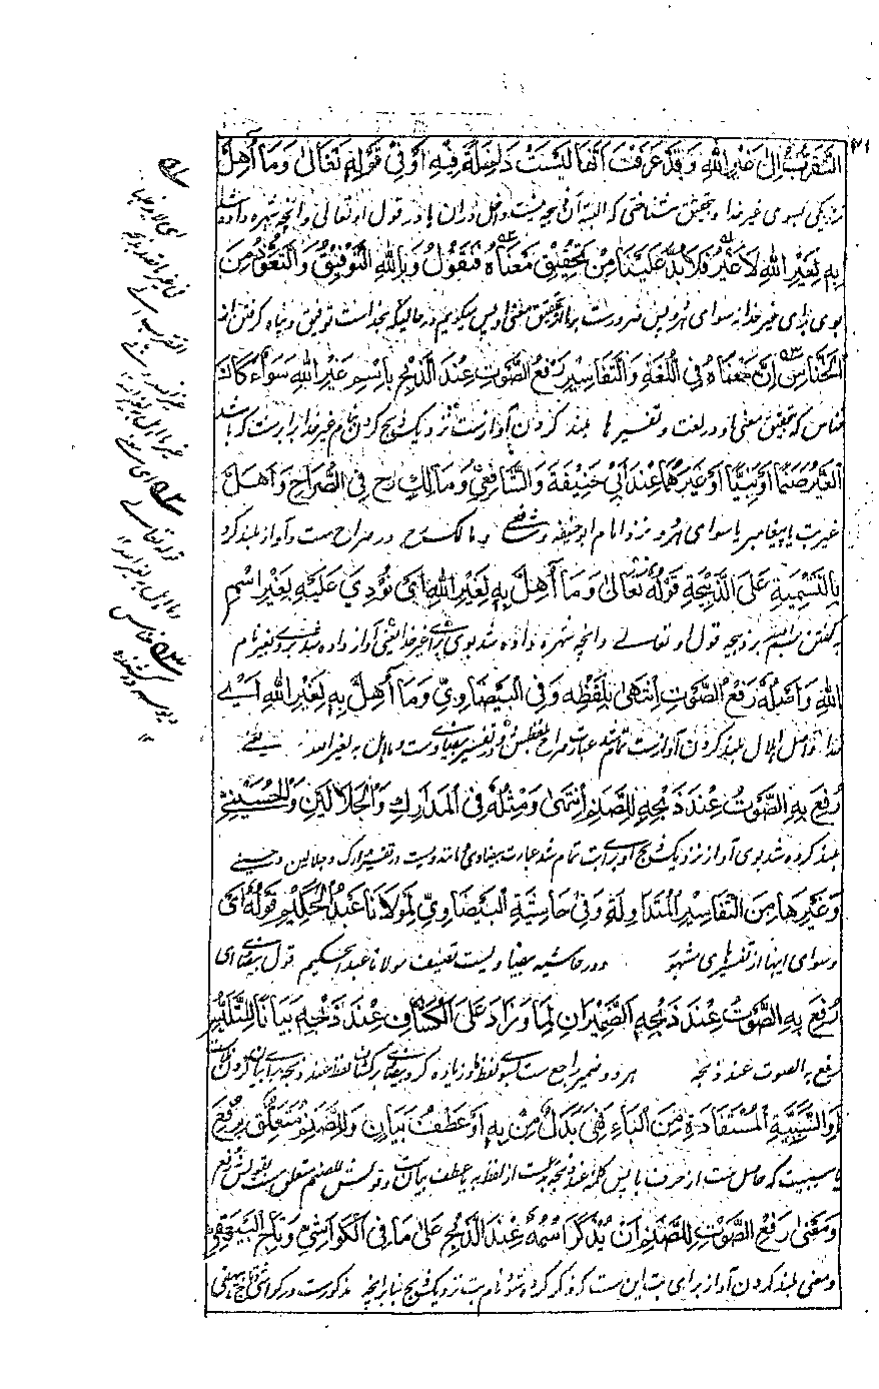 التقرب الى غير الله وقد عرفت انها ليست داخلة فيه او في قوله تعالى وما اهل
نزدیکی بسوی غیر خدا و بتحقیق شناختی که البته آن ذبیحه نیست داخل دران یا در قول او تعالی وانچه شهره داده شد
به لغير الله لا غير فلا بد علينا من تحقيق معناه فنقول وبالله التوفيق والتعوذ من
بوی برای غیر خدا نه سوای هر دو پس ضرورست بر ما از تحقیق معنی او پس میگوییم در حالیکه بخداست توفیق و پناه گرفتن از
الخناس ان معناه في اللغة والتفاسير رفع الصوت عند الذبح باسم غير الله سواء كان
خناس که بتحقیق معنی او در لغت و تفسیر ها بلند کردن آوازست نزدیک ذبح کردن بنام غیر خدا برابرست که باشد
الغير صنما او نبيا او غيرهما عند ابي حنيفة والشافعي ومالك رح في الصراح واهل
غیر بت یا پیغامبر یا سوای هر دو نزد امام ابو حنیفه و شافعی و مالک رح در صراح ست و آواز بلند کرد
بالتسمية على الذبيحة قوله تعالى وما اهل به لغير الله اي نودي عليه بغير اسم
بگفتن بسم الله بر ذبیحه قول او تعالے وانچه شهره داده شد بوی برای غیر خدا یعنی آواز داده شد بروی بغیر نام
الله واصله رفع الصوت انتهى بلفظه وفي البيضاوي وما اهل به لغير الله اي
خدا و اصل اهلال بلند کردن آوازست تمام شد عبارت صراح بلفظش و در تفسیر بیضاوی ست وما اهل به لغیر الله یعنے
رفع به الصوت عند ذبحه للصنم انتهى ومثله في المدارك والجلالين والحسيني
بلند کرده شد بوی آواز نزدیک ذبح او برای بت تمام شد عبارت بیضاوی و مانند ویست در تفسیر مدارک و جلالین و حسینے
وغيرها من التفاسير المتداولة وفي حاشية البيضاوي لمولانا عبد الحكيم قوله اى
وسوای اینها از تفسیرهای مشهور و در حاشیه بیضاویست تصنیف مولانا عبد الحکیم قول بیضاوی ای
رفع به الصوت عند ذبحه الضميران لما وزاد على الكشاف عند ذبحه بيانا للتلبس
رفع به الصوت عند ذبحه هر دو ضمیر راجع ست بسوی لفظ ما و زیاده کرد بیضاوی بر کشاف لفظ عند ذبحه برای بیان کردن
او السببية المستفادة من الباء فهي بدل من به او عطف بيان وللصنم متعلق برفع
یا سببیت که حاصل ست از حرف با پس کلمه عند ذبحه بدلست از لفظ به یا عطف بیانست و قولش للصنم متعلق ست بقولش رفع
ومعنى رفع الصوت للصنم ان يذكر اسمه عند الذبح على ما في الكواشي وتاج البيهقي
ومعنی بلند کردن آواز برای بت این ست که ذکر کرده شود نام بت نزدیک ذبح بنا بر انچه مذکورست در کواشی و تاج بیهقی